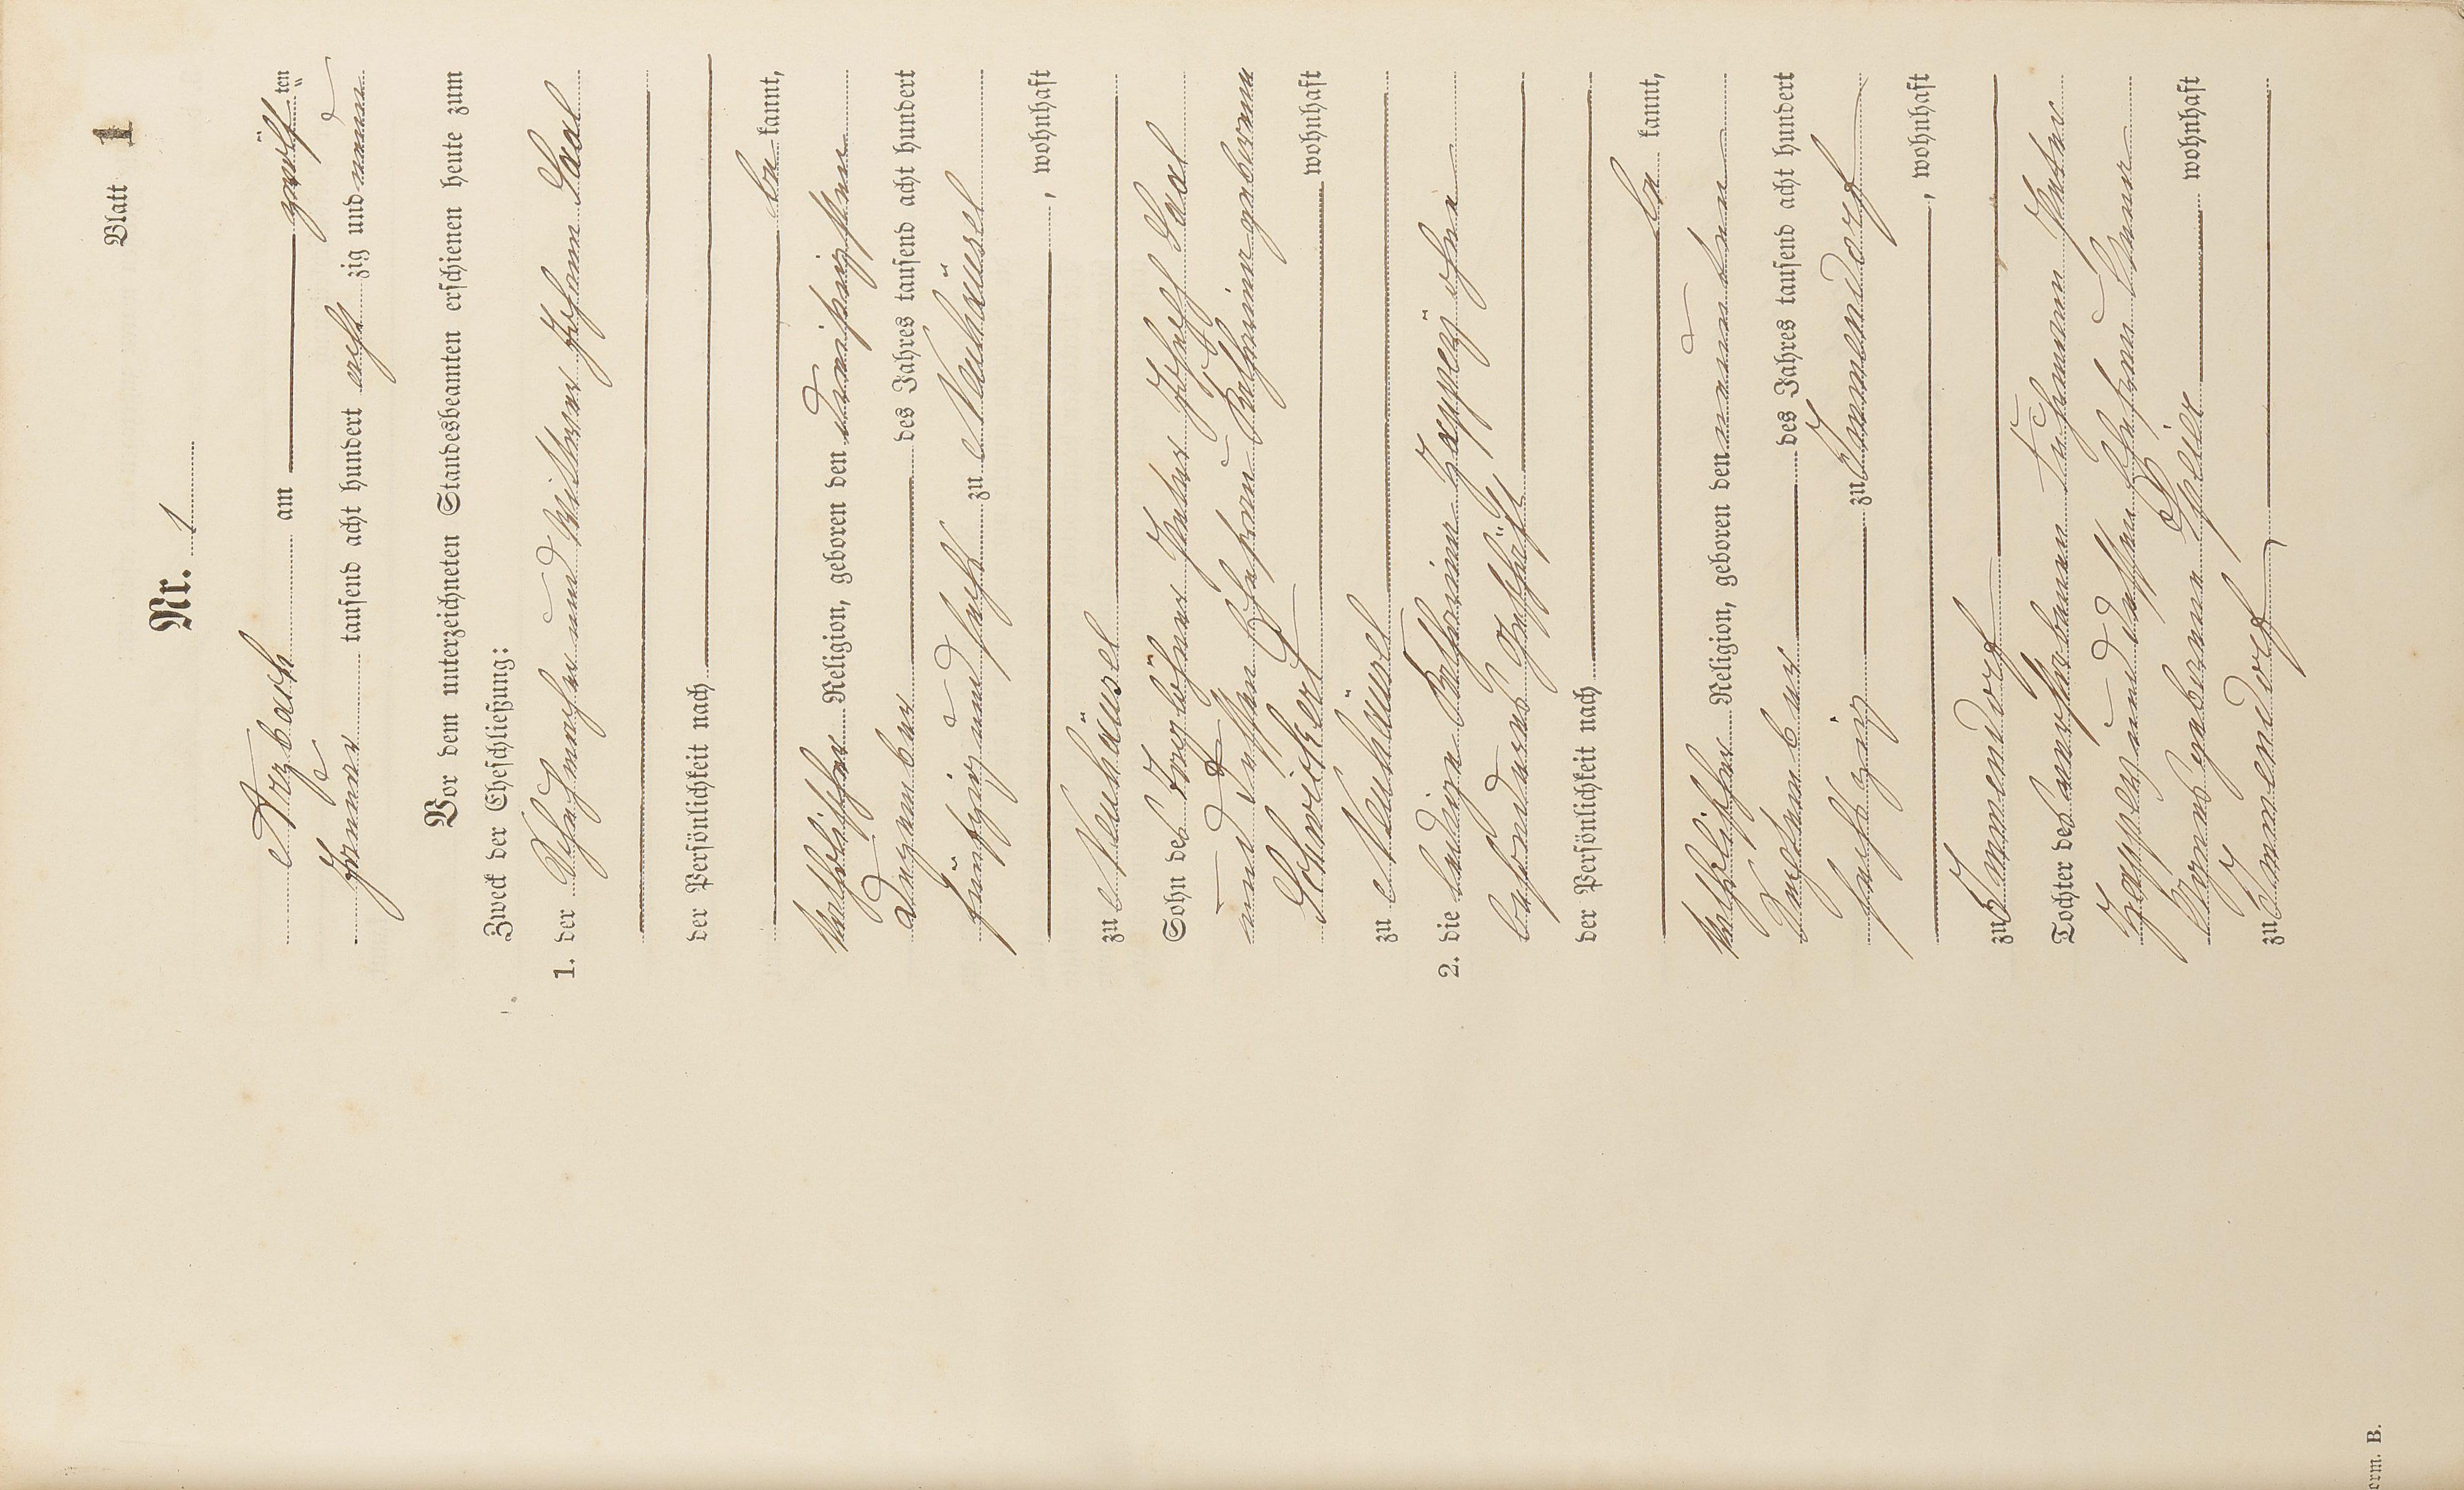 Blatt 1
Nr. 1
Arzbach am zwölften
Januar tausend acht hundert acht zig und neun
Vor dem unterzeichneten Standesbeamten erschienen heute zum
Zweck der Eheschließung:
1. der Schuhmacher und Wittwer Johann Saal
der Persönlichkeit nach
be kannt,
katholischer Religion, geboren den dreißigsten
Dezember des Jahres tausend acht hundert
fünfzig und sechs zu Neuhäusel
, wohnhaft
zu Neuhäusel
Sohn des Taglöhners Peter Josef Saal
und dessen Ehefrau Katharina geborene
Schwickert wohnhaft
zu Neuhäusel
2. die ledige Katharina Zerppez ohne
besonderes Geschäft
der Persönlichkeit nach
be kannt,
katholischer Religion, geboren den neunten
September des Jahres tausend acht hundert
sechszig zu Immendorf
, wohnhaft
zu Immendorf
Tochter des Fuhrmann Peter
und dessen Ehefrau Anna
geborene Speier wohnhaft
zu Immendorf
erm. B.